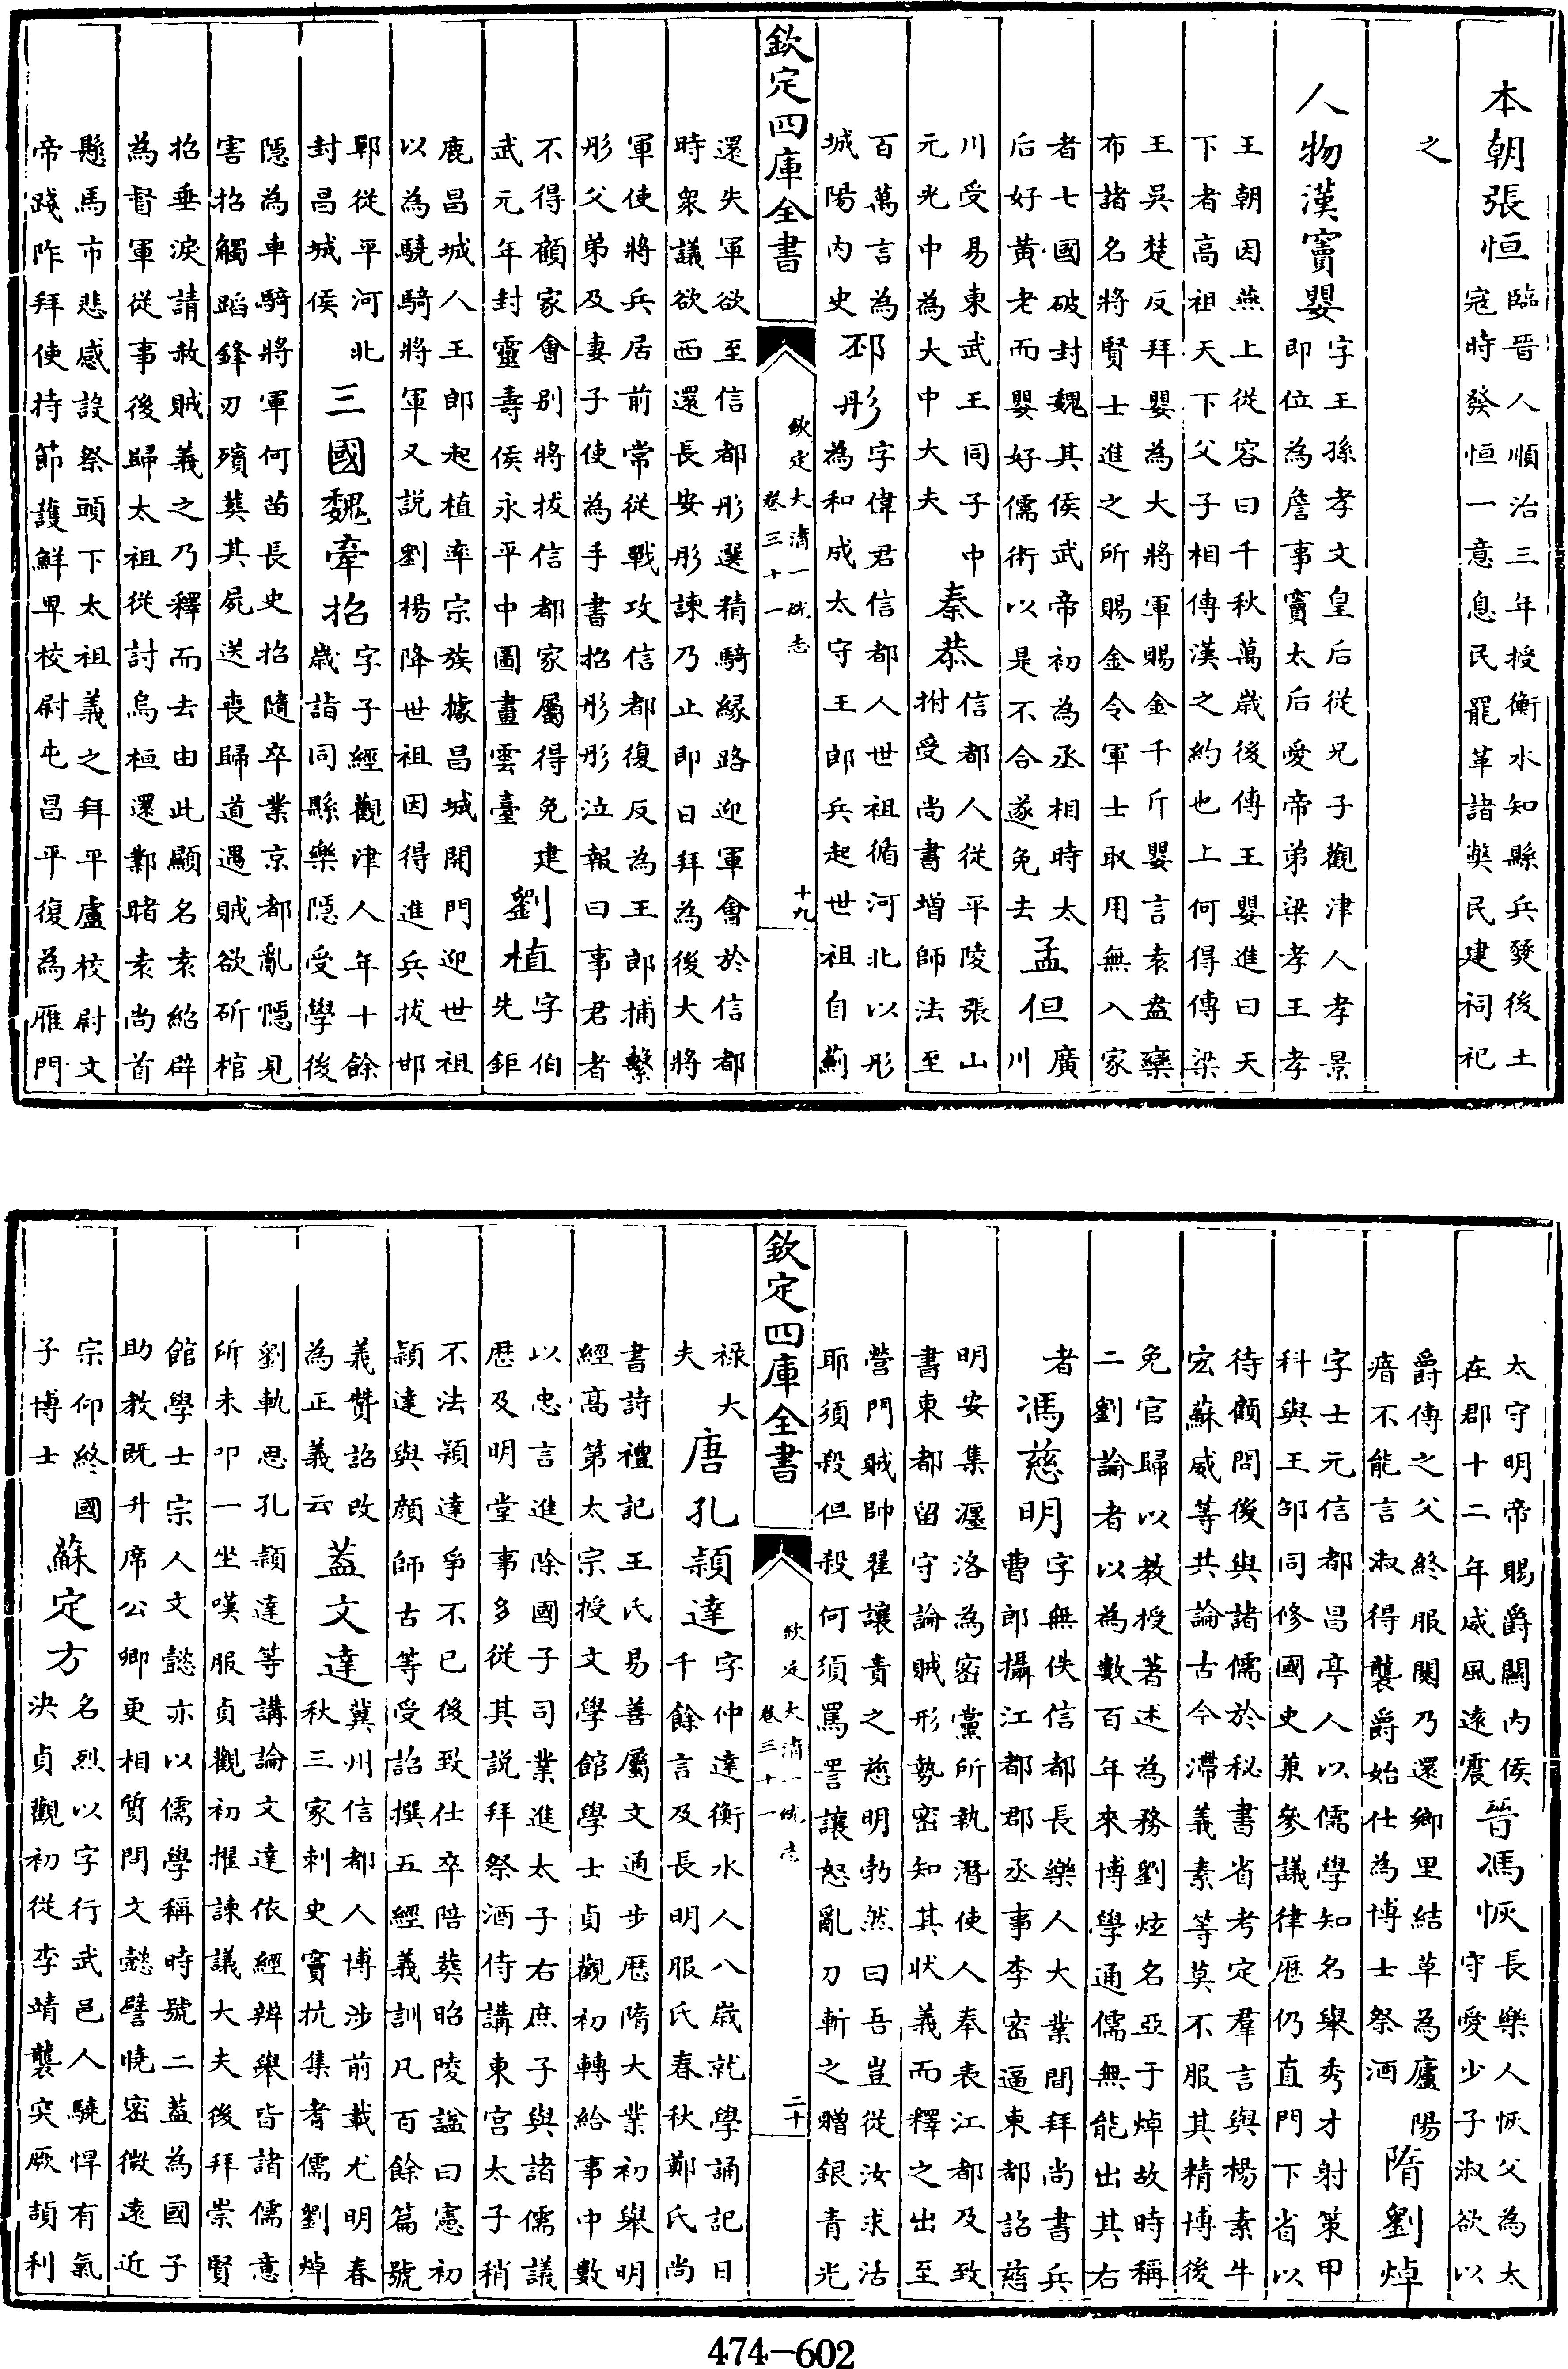 本朝張恒臨晋人順治三年授衡水知縣兵燹後土
寇時發恒一意息民罷革諸獘民建祠祀
之
人物漢竇嬰字王孫孝文皇后從兄子觀津人孝景
即位為詹事竇太后愛帝弟梁孝王孝
王朝因燕上從容曰千秋萬歲後傳王嬰進曰天
下者高祖天下父子相傳漢之約也上何得傳梁
王吳楚反拜嬰為大將軍賜金千斤嬰言袁盎欒
布諸名將賢士進之所賜金令軍士取用無入家
者七國破封魏其侯武帝初為丞相時太
后好黄老而嬰好儒術以是不合遂免去
孟但廣
川
川受易東武王同子中
元光中為大中大夫
秦恭信都人從平陵張山
拊受尚書增師法至
百萬言為
城陽内史
邳彤字偉君信都人世祖循河北以彤
為和成太守王郎兵起世祖自薊
欽定四庫全書
欽定大清一統志
卷三十一
十九
還失軍欲至信都彤選精騎緣路迎軍會於信都
時衆議欲西還長安彤諫乃止即日拜為後大將
軍使將兵居前常從戰攻信都復反為王郎捕繫
彤父弟及妻子使為手書招彤彤泣報曰事君者
不得顧家會別將拔信都家屬得免建
武元年封靈壽侯永平中圖畫雲臺
劉植字伯
先鉅
鹿昌城人王郎起植率宗族據昌城開門迎世祖
以為驍騎將軍又説劉楊降世祖因得進兵拔邯
鄲從平河北
封昌城侯
三國魏牽招字子經觀津人年十餘
歲詣同縣樂隱受學後
隱為車騎將軍何苗長史招隨卒業京都亂隱見
害招觸蹈鋒刃殯葬其屍送喪歸道遇賊欲斫棺
招垂淚請赦賊義之乃釋而去由此顯名袁紹辟
為督軍從事後歸太祖從討烏桓還鄴睹袁尚首
懸馬市悲感設祭頭下太祖義之拜平盧校尉文
帝踐阼拜使持節護鮮卑校尉屯昌平復為雁門
太守明帝賜爵關内侯
在郡十二年威風遠震
晉馮恢長樂人恢父為太
守愛少子淑欲以
爵傳之父終服闋乃還鄉里結草為廬陽
瘖不能言淑得襲爵始仕為博士祭酒
隋劉焯
字士元信都昌亭人以儒學知名舉秀才射策甲
科與王邵同修國史兼參議律歴仍直門下省以
待顧問後與諸儒於秘書省考定羣言與楊素牛
宏蘇威等共論古今滯義素等莫不服其精博後
免官歸以教授著述為務劉炫名亞于焯故時稱
二劉論者以為數百年來博學通儒無能出其右
者
馮慈明字無佚信都長樂人大業間拜尚書兵
曹郎攝江都郡丞事李密逼東都詔慈
明安集瀍洛為密黨所執潛使人奉表江都及致
書東都留守論賊形勢密知其狀義而釋之出至
營門賊帥翟讓責之慈明勃然曰吾豈從汝求活
耶須殺但殺何須罵詈讓怒亂刀斬之贈銀青光
欽定四庫全書
欽定大清一統志
卷三十一
二十
禄大
夫
唐孔頴達字仲達衡水人八歲就學誦記日
千餘言及長明服氏春秋鄭氏尚
書詩禮記王氏易善屬文通步歴隋大業初舉明
經高第太宗授文學館學士貞觀初轉給事中數
以忠言進除國子司業進太子右庶子與諸儒議
歴及明堂事多從其説拜祭酒侍講東宫太子稍
不法頴達爭不已後致仕卒陪葬昭陵諡曰憲初
頴達與顔師古等受詔撰五經義訓凡百餘篇號
義贊詔改
為正義云
蓋文達冀州信都人博涉前載尤明春
秋三家刺史竇抗集耆儒劉焯
劉軌思孔頴達等講論文達依經辨舉皆諸儒意
所未叩一坐嘆服貞觀初擢諫議大夫後拜崇賢
館學士宗人文懿亦以儒學稱時號二蓋為國子
助教既升席公卿更相質問文懿譬曉密微遠近
宗仰終國
子博士
蘇定方名烈以字行武邑人驍悍有氣
決貞觀初從李靖襲突厥頡利
474-602